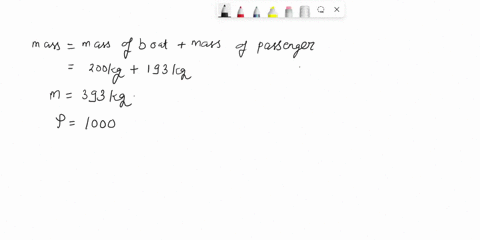 mass = mass of boat + mass of passenger
= 200kg + 193kg
m = 393kg
ρ = 1000